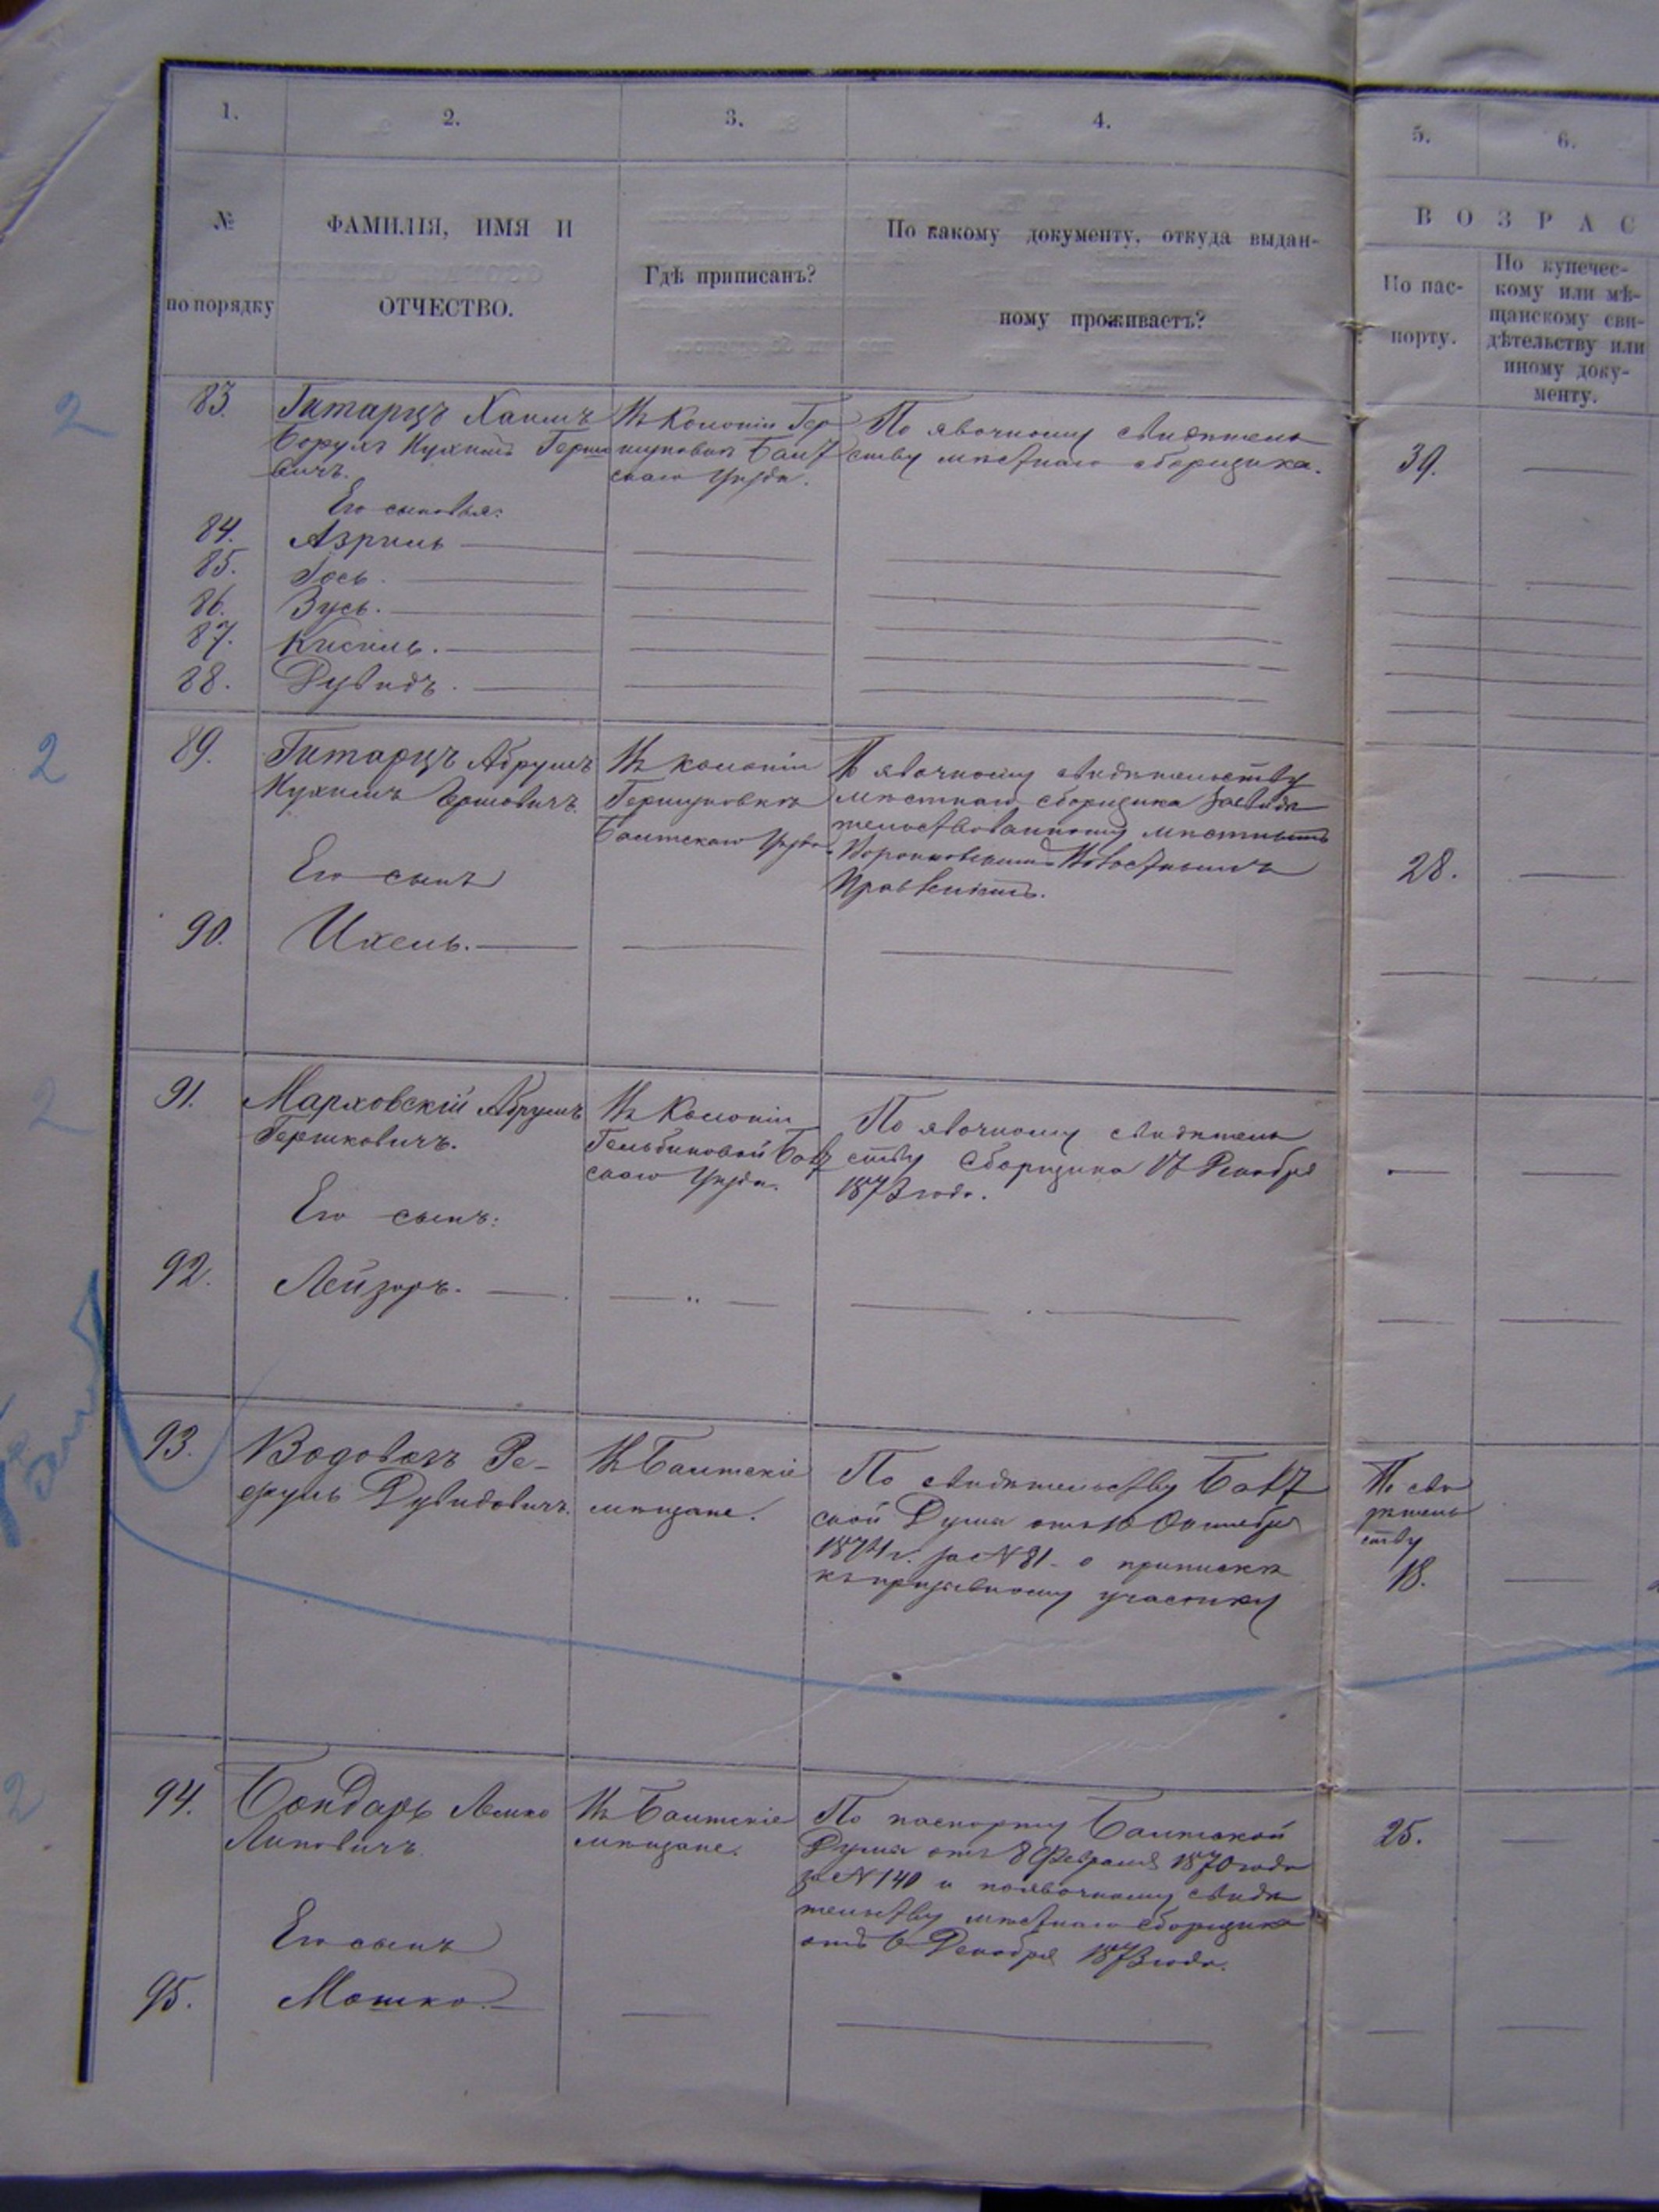 1. 2. 3. 4. 5. 6.
№
по порядку
ФАМИЛІЯ, ИМЯ И
ОТЧЕСТВО.
Гдѣ приписанъ?
По какому документу, откуда выдан-
ному проживаетъ?
ВОЗРАС
По пас-
порту.
По купечес-
кому или мѣ-
щанскому сви-
дѣтельству или
иному доку-
менту.
83.
Гитарцъ Хаимъ
Борухъ Нухимъ Герш
вичъ.
Къ Колоніи Гер
шуновкѣ Балт
скаго Уѣзда.
По явочному свидѣтель
ству мѣстнаго сборщика.
39.
Его сыновья:
84. Азриль
85. Іось.
86. Зусь.
87. Кисиль.
88. Дувидъ.
89.
Гитарцъ Абрумъ
Нухимъ Гершовичъ.
Къ колоніи
Гершуновкѣ
Балтскаго Уѣзда.
По явочному свидѣтельству
мѣстнаго сборщика засвидѣ
тельствованному мѣстнымъ
Волостнымъ
Правленіемъ.
28.
Его сынъ
90. Ихель.
91.
Марховскій Абрумъ
Гершковичъ.
Къ Колоніи
Гельбиновой Балт
скаго Уѣзда.
По явочному свидѣтель
ству Сборщика 17 Декабря
1873 года.
Его сынъ:
92. Лейзоръ.
93.
Водовозъ Ре-
фуль Дувидовичъ.
Къ Балтскіе
мѣщане.
По свидѣтельству Балт
ской Думы отъ 10 Октября
1874 г. за № 81 о припискѣ
къ призывному участку
По сви
дѣтель
ству
18.
94.
Бондарь Лейко
Липовичъ.
Къ Балтскіе
мѣщане.
По паспорту Балтской
Думы отъ 8 Февраля 1870 года
за № 140 и по явочному свидѣ
тельству мѣстнаго сборщика
отъ 6 Декабря 1873 года.
25.
Его сынъ
95. Мошко.
2
2
2
2